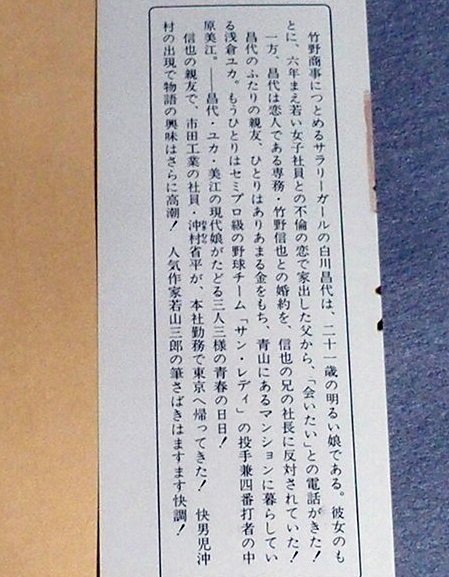 竹野商事につとめるサラリーガールの白川昌代は、二十一歳の明るい娘である。彼女のも
とに、六年まえ若い女子社員との不倫の恋で家出した父から、「会いたい」との電話がきた！
一方、昌代は恋人である専務・竹野信也との婚約を、信也の兄の社長に反対されていた！
昌代のふたりの親友、ひとりはありあまる金をもち、青山にあるマンションに暮らしてい
る浅倉ユカ。もうひとりはセミプロ級の野球チーム「サン・レディ」の投手兼四番打者の中
原美江。——昌代・ユカ・美江の現代娘がたどる三人三様の青春の日日！
信也の親友で、市田工業の社員・沖村省平が、本社勤務で東京へ帰ってきた！　快男児沖
村の出現で物語の興味はさらに高潮！　人気作家若山三郎の筆さばきはますます快調！